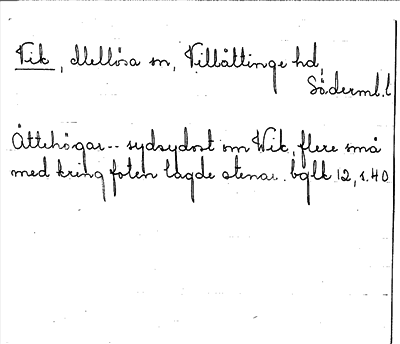 Vik, Mellösa sn, Villåttinge hd,
Söderml.l
Ättehögar -- sydsydost om Wik, flere små
med kring foten lagde stenar. bglk 12, s. 40